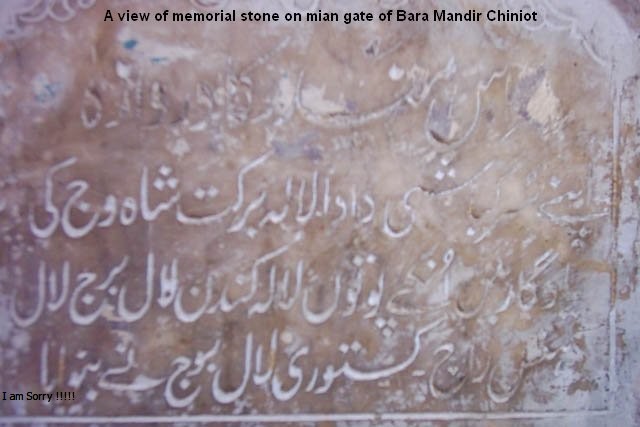 A view of memorial stone on mian gate of Bara Mandir Chiniot
اس کا دروازہ
اپنے دادا لالہ برکت شاہ وج کی
میں اُنکے پوتوں لالہ کندن لال برج لال
راج کستوری لال بوج نے بنوایا
I am Sorry !!!!!